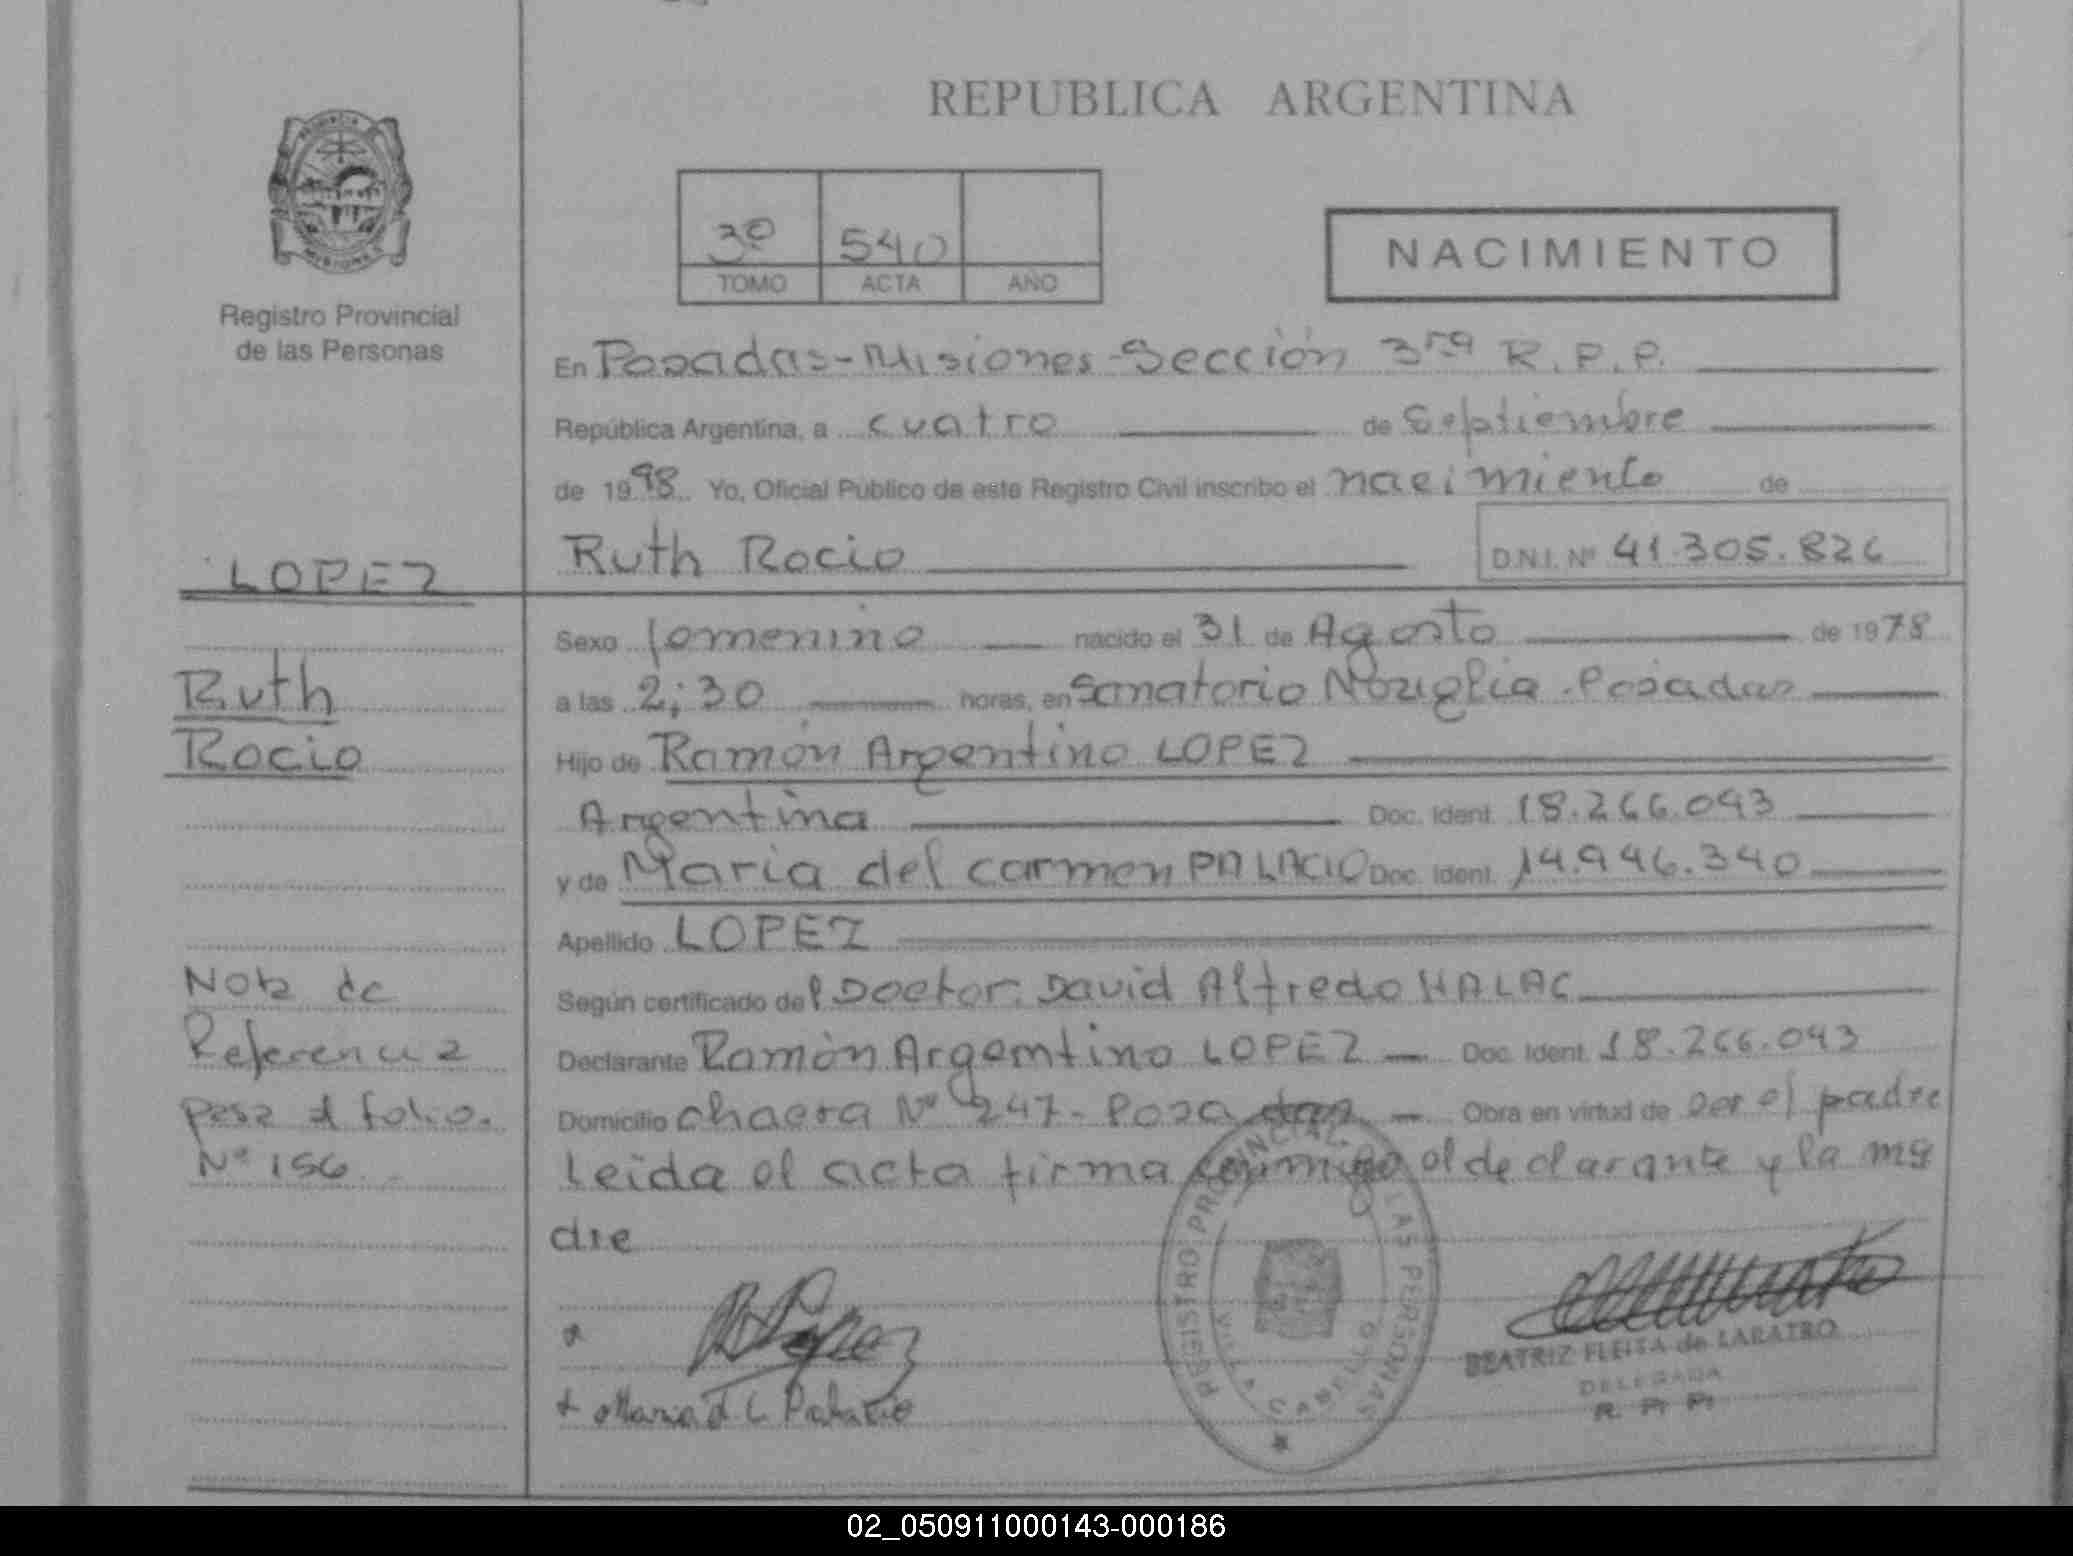 REPUBLICA ARGENTINA
PROVINCIA
MISIONES
Registro Provincial
de las Personas
3º 540
TOMO ACTA AÑO
NACIMIENTO
En Posadas-Misiones-Sección 3ra R.P.P.
República Argentina, a cuatro de Septiembre
de 1998 Yo, Oficial Público de este Registro Civil inscribo el nacimiento de
Ruth Rocio D.N.I. Nº 41.305.826
LOPEZ
Sexo femenino nacido el 31 de Agosto de 1978
Ruth
a las 2:30 horas, en Sanatorio Nosiglia-Posadas
Rocio
Hijo de Ramón Argentino LOPEZ
Argentina Doc. Ident. 18.266.043
y de Maria del carmen PALACIO Doc. Ident. 14.946.340
Apellido LOPEZ
Nota de
Referencia
pasa al folio.
Nº 156
Según certificado del Doctor: David Alfredo HALAC
Declarante Ramón Argentino LOPEZ Doc. Ident. 18.266.043
Domicilio chacra Nº 247-Posadas Obra en virtud de ser el padre
Leida el acta firma conmigo el declarante y la ma
dre
REGISTRO PROVINCIAL DE LAS PERSONAS
VILLA CABELLO
Lopez
Maria d C Palacio
BEATRIZ FLEITA de LARATRO
DELEGADA
R. P. P.
02_050911000143-000186